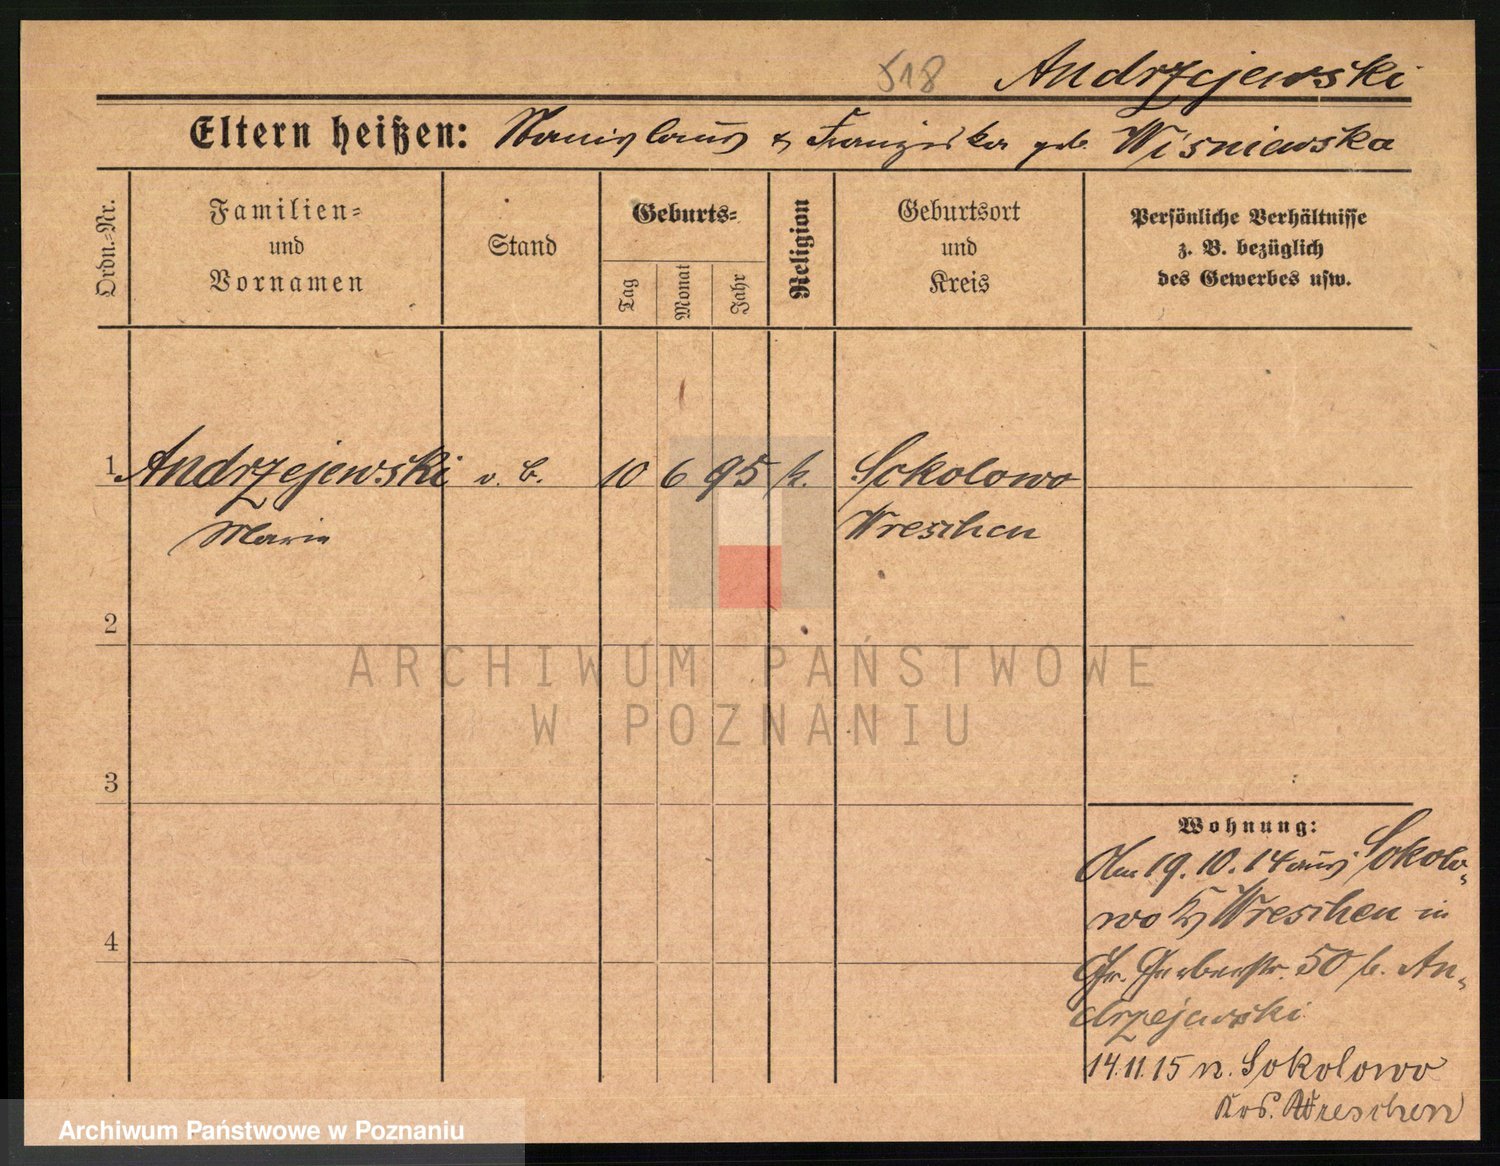 518 Andrzejewski
Eltern heißen: Stanislaus & Franziska geb. Wiśniewska
Ordn.-Nr.
Familien-
und
Vornamen
Stand
Geburts-
Tag
Monat
Jahr
Religion
Geburtsort
und
Kreis
Persönliche Verhältnisse
z. B. bezüglich
des Gewerbes usw.
1 Andrzejewski v. B. 10 6 95 k. Sokolowo
Marie Wreschen
2
ARCHIWUM PAŃSTWOWE
W POZNANIU
3
Wohnung:
Am 19.10.14 aus Sokolo-
wo Kr Wreschen in
Gr. Gerberstr. 50 b. An-
drzejewski
4
14.11.15 n. Sokolowo
Krs. Wreschen
Archiwum Państwowe w Poznaniu